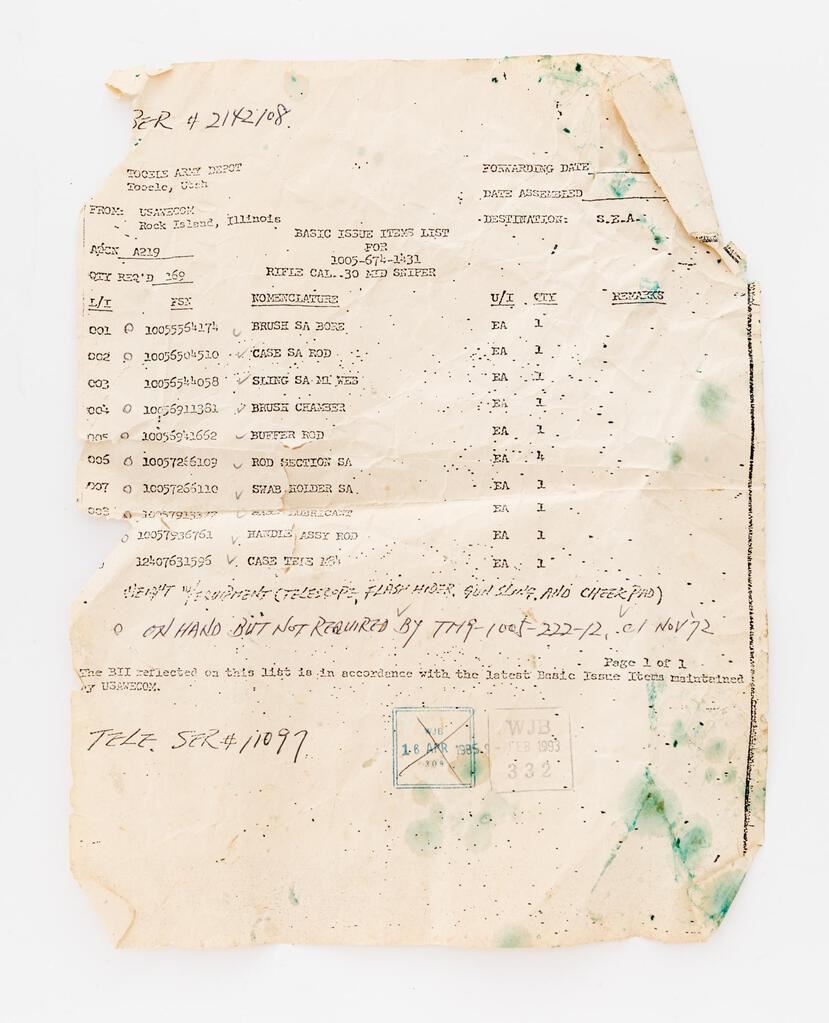 SER # 2142108
TOOELE ARMY DEPOT
Tooele, Utah
FORWARDING DATE
DATE ASSEMBLED
FROM: USAWECOM
Rock Island, Illinois
DESTINATION: S.E.A.
BASIC ISSUE ITEMS LIST
FOR
1005-674-1431
RIFLE CAL..30 M1D SNIPER
A219
QTY REQ'D 269
L/I FSN NOMENCLATURE U/I QTY REMARKS
001 10055564174 BRUSH SA BORE EA 1
002 10056504510 CASE SA ROD EA 1
003 10056544058 SLING SA M1 WEB EA 1
004 10056911381 BRUSH CHAMBER EA 1
005 10056941662 BUFFER ROD EA 1
006 10057266109 ROD SECTION SA EA 4
007 10057266110 SWAB HOLDER SA EA 1
008 LUBRICANT EA 1
10057936761 HANDLE ASSY ROD EA 1
12407631596 CASE TELE M84 EA 1
W/EQUIPMENT (TELESCOPE, FLASH HIDER, GUN SLING, AND CHEEK PAD)
O ON HAND BUT NOT REQUIRED BY TM9-1005-222-12, C1 NOV 72
Page 1 of 1
The BII reflected on this list is in accordance with the latest Basic Issue Items maintained
by USAWECOM.
TELE SER # 11097
WJB
16 APR 1985
309
WJB
FEB 1993
332